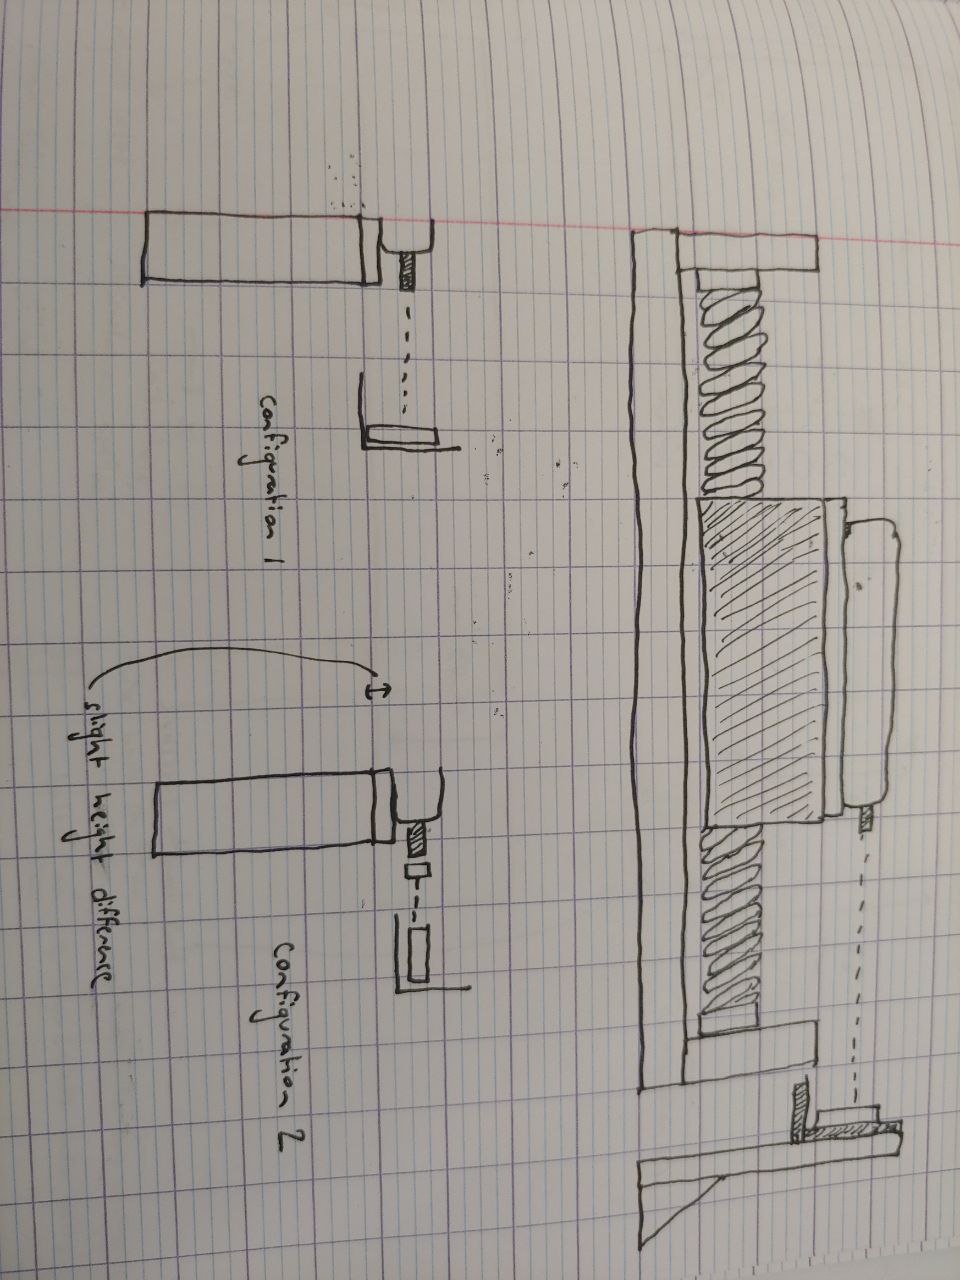 configuration 1
configuration 2
slight height difference